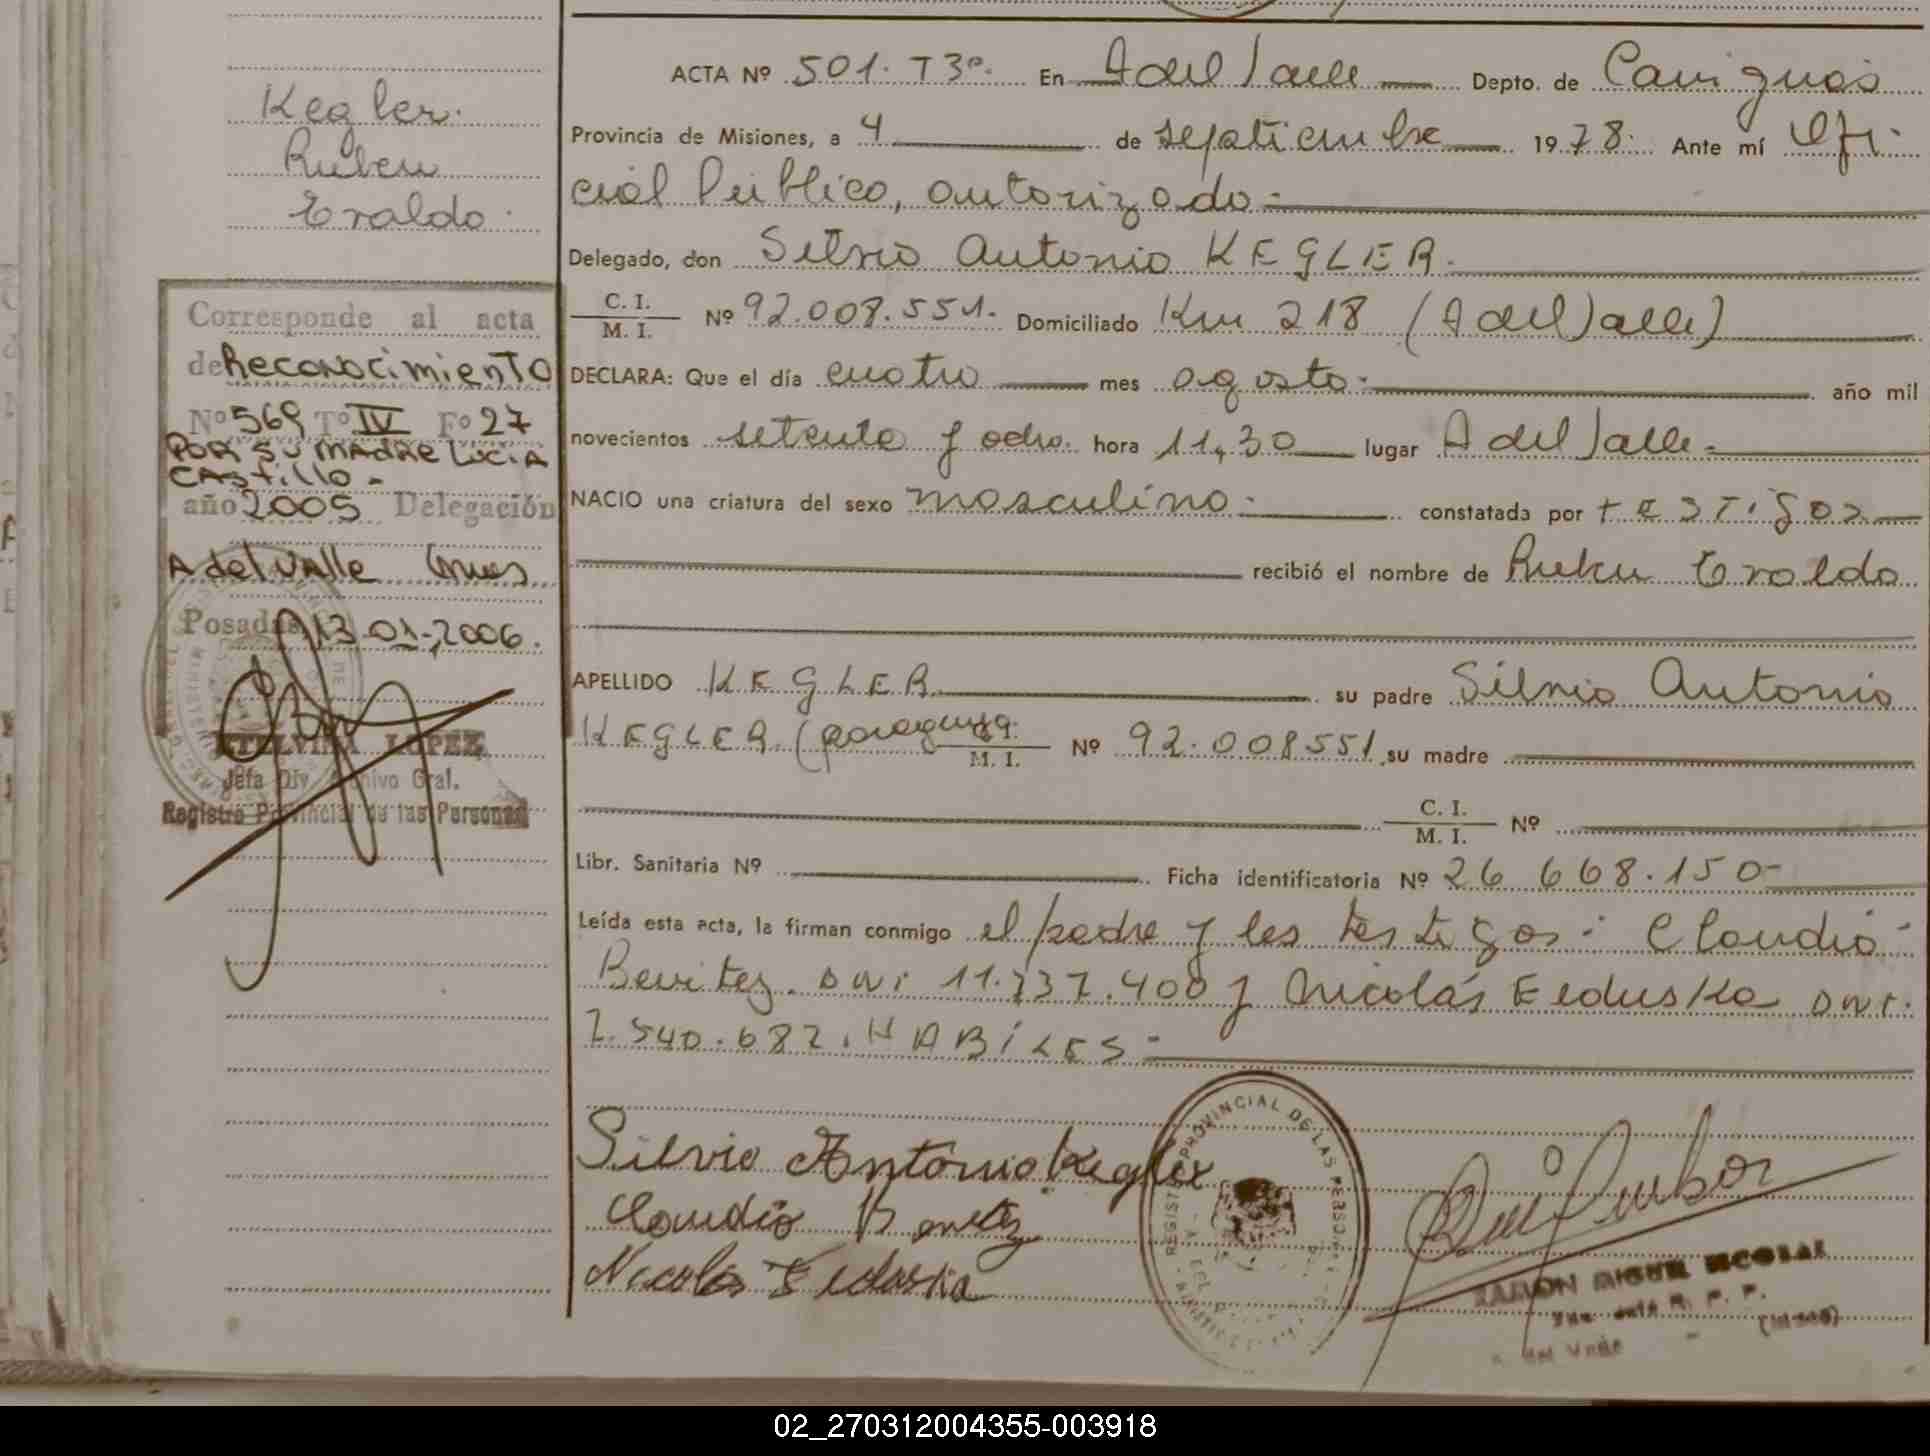 Kegler.
Ruben
Eraldo.
Corresponde al acta
de Reconocimiento
Nº 569 Tº IV Fº 27
POR SU MADRE LUCIA
CASTILLO -
año 2005 Delegación
A del Valle
Posadas, 13-01-2006.
ETELVINA LOPEZ
Jefa Div. Archivo Gral.
Registro Provincial de las Personas
ACTA Nº 501. T3º. En A del Valle Depto. de
Provincia de Misiones, a 4 de septiembre 1978. Ante mí Ofi-
cial Público, autorizado.-
Delegado, don Silvio Antonio KEGLER.
C. I.
M. I. Nº 92.008.551. Domiciliado Km 218 (A del Valle)
DECLARA: Que el día cuatro mes agosto.- año mil
novecientos setenta y ocho. hora 11,30 lugar A del Valle.-
NACIO una criatura del sexo masculino.- constatada por testigos
recibió el nombre de Ruben Eraldo
APELLIDO KEGLER su padre Silvio Antonio
KEGLER (paraguayo M. I. Nº 92.008551 su madre
C. I.
M. I. Nº
Libr. Sanitaria Nº Ficha identificatoria Nº 26 668.150-
Leída esta acta, la firman conmigo el padre y los testigos: Claudio
Benitez. DNI 11.737.400 y Nicolás Feduska DNI.
7.540.687. HABILES.-
Silvio Antonio Kegler
Claudio Benitez
Nicolas Feduska
REGISTRO PROVINCIAL DE LAS PERSONAS
RAMON MIGUEL
del Valle
02_270312004355-003918